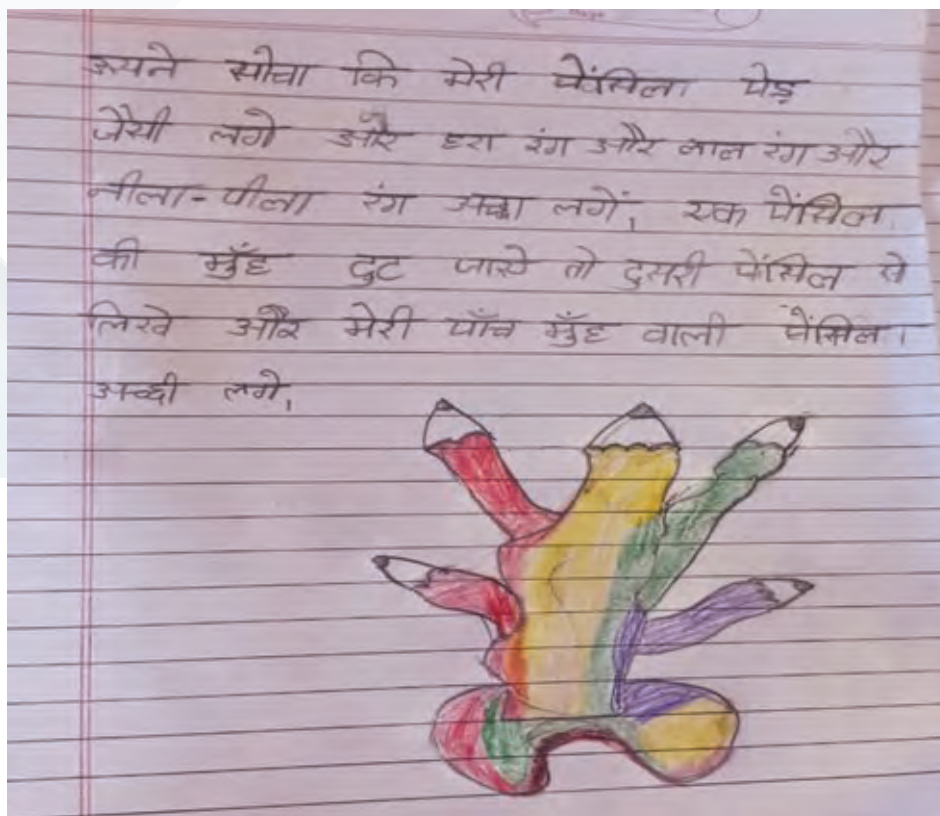 सोचा कि मेरी पेंसिल पेड़
जैसी लगे और हरा रंग और लाल रंग और
नीला-पीला रंग अच्छा लगें, एक पेंसिल
की मुँह टुट जाये तो दुसरी पेंसिल से
लिखे और मेरी पाँच मुँह वाली पेंसिल।
अच्छी लगे,